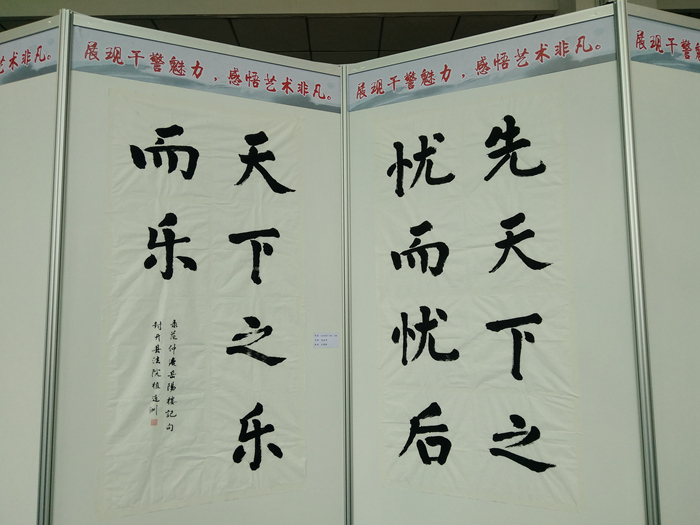 艺术非凡。
展现干警魅力，感悟艺术非凡。
展现干警魅力，感悟艺术非凡。
展现干警魅
先天下之
忧而忧后
天下之乐
而乐
录范仲淹岳阳楼记句
封开县法院植连洲